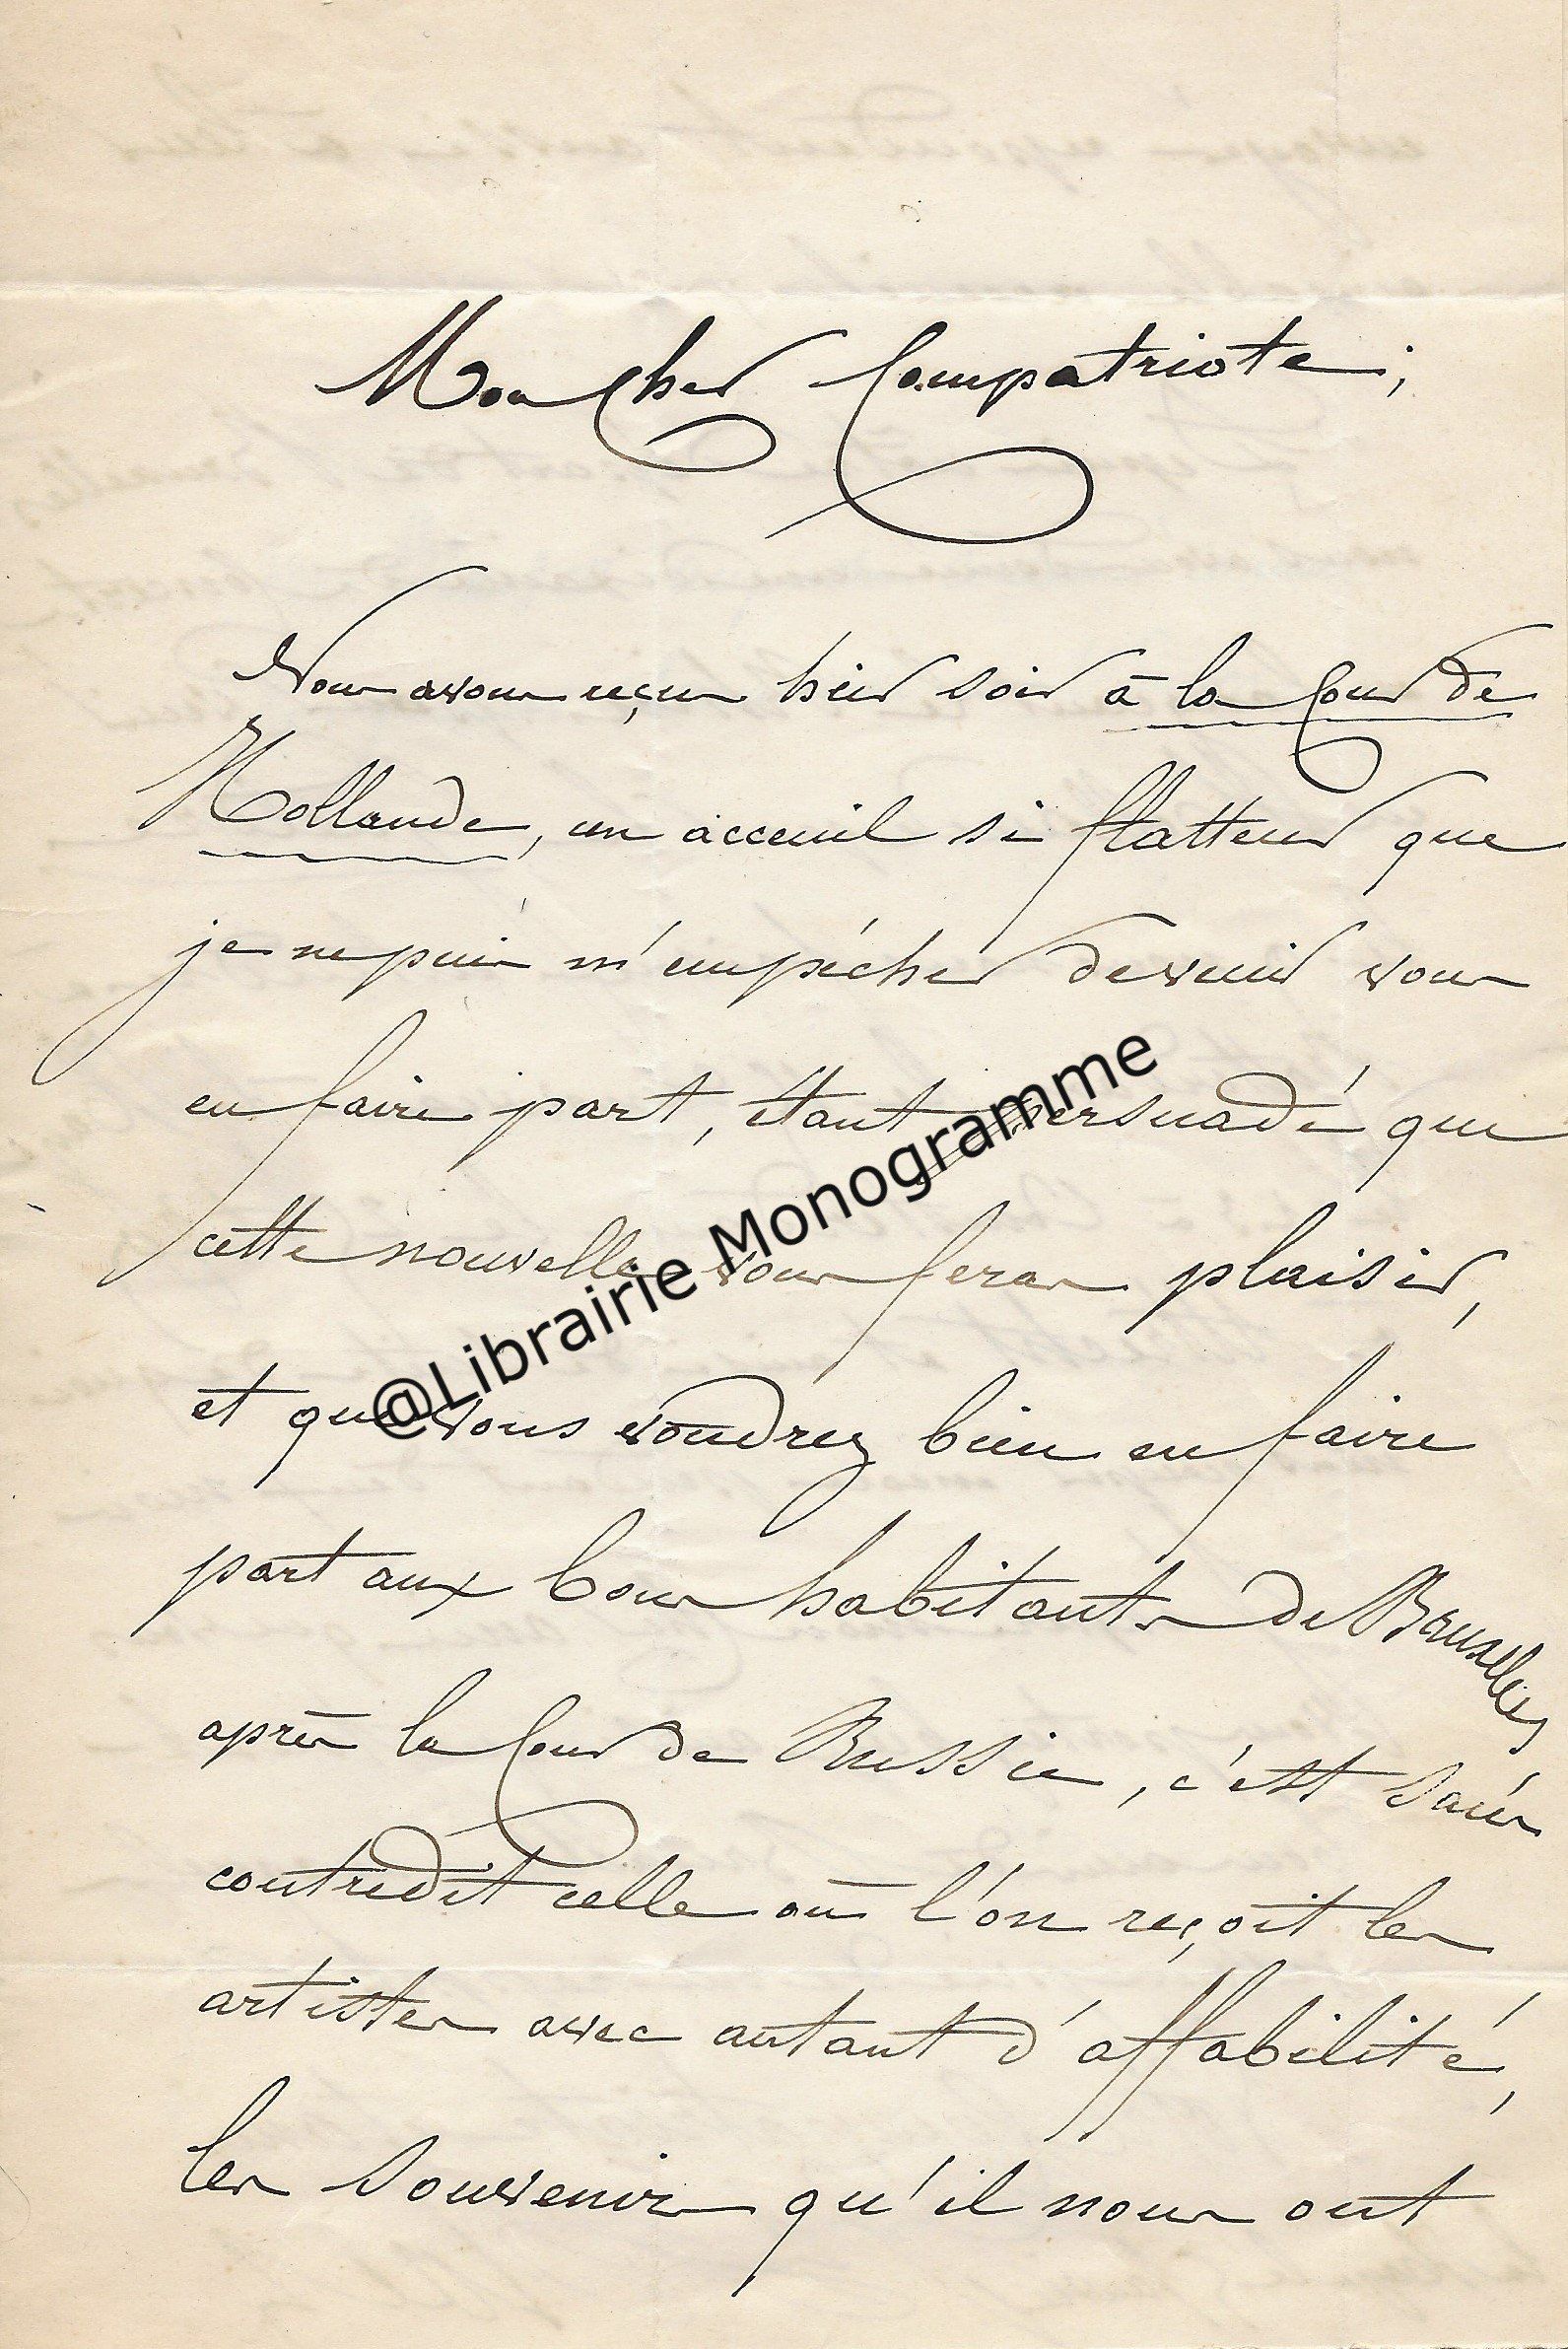 Mon cher Compatriote;
Nous avons reçus hier soir à la Cour de
Hollande, un acceuil si flatteur que
je ne puis m'empécher de venir vous
en faire part, étant persuadé que
cette nouvelle vous feras plaisir,
et que vous voudrez bien en faire
part aux bons habitants de Bruxelles
après la Cour de Russie, c'est sans
contredit celle où l'on reçoit les
artistes avec autant d'affabilité,
les souvenirs qu'il nous ont
@Librairie Monogramme